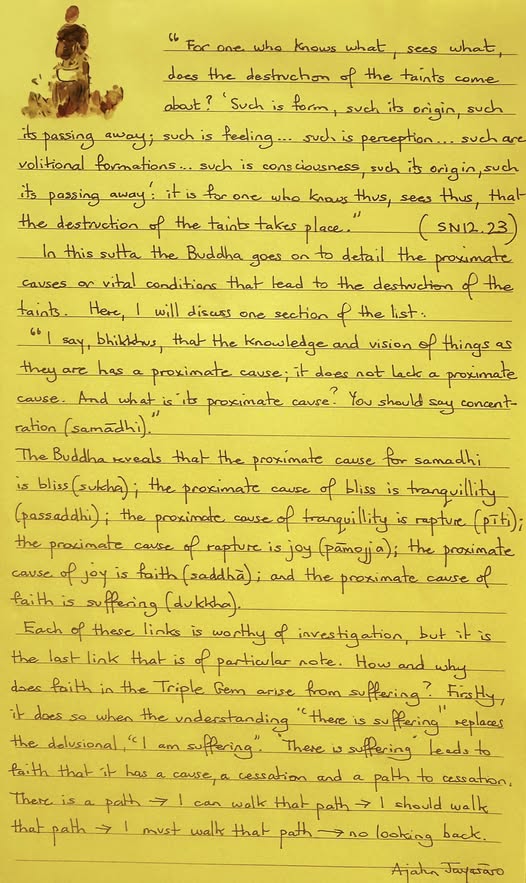 “For one who knows what, sees what,
does the destruction of the taints come
about? ‘Such is form, such its origin, such
its passing away; such is feeling... such is perception... such are
volitional formations... such is consciousness, such its origin, such
its passing away’: it is for one who knows thus, sees thus, that
the destruction of the taints takes place.” (SN12.23)
In this sutta the Buddha goes on to detail the proximate
causes or vital conditions that lead to the destruction of the
taints. Here, I will discuss one section of the list:
“I say, bhikkhus, that the knowledge and vision of things as
they are has a proximate cause; it does not lack a proximate
cause. And what is its proximate cause? You should say concent-
ration (samādhi).”
The Buddha reveals that the proximate cause for samadhi
is bliss (sukha); the proximate cause of bliss is tranquillity
(passaddhi); the proximate cause of tranquillity is rapture (pīti);
the proximate cause of rapture is joy (pāmojja); the proximate
cause of joy is faith (saddhā); and the proximate cause of
faith is suffering (dukkha).
Each of these links is worthy of investigation, but it is
the last link that is of particular note. How and why
does faith in the Triple Gem arise from suffering? Firstly,
it does so when the understanding “there is suffering” replaces
the delusional, “I am suffering”. “There is suffering” leads to
faith that it has a cause, a cessation and a path to cessation.
There is a path → I can walk that path → I should walk
that path → I must walk that path → no looking back.
Ajahn Jayasāro